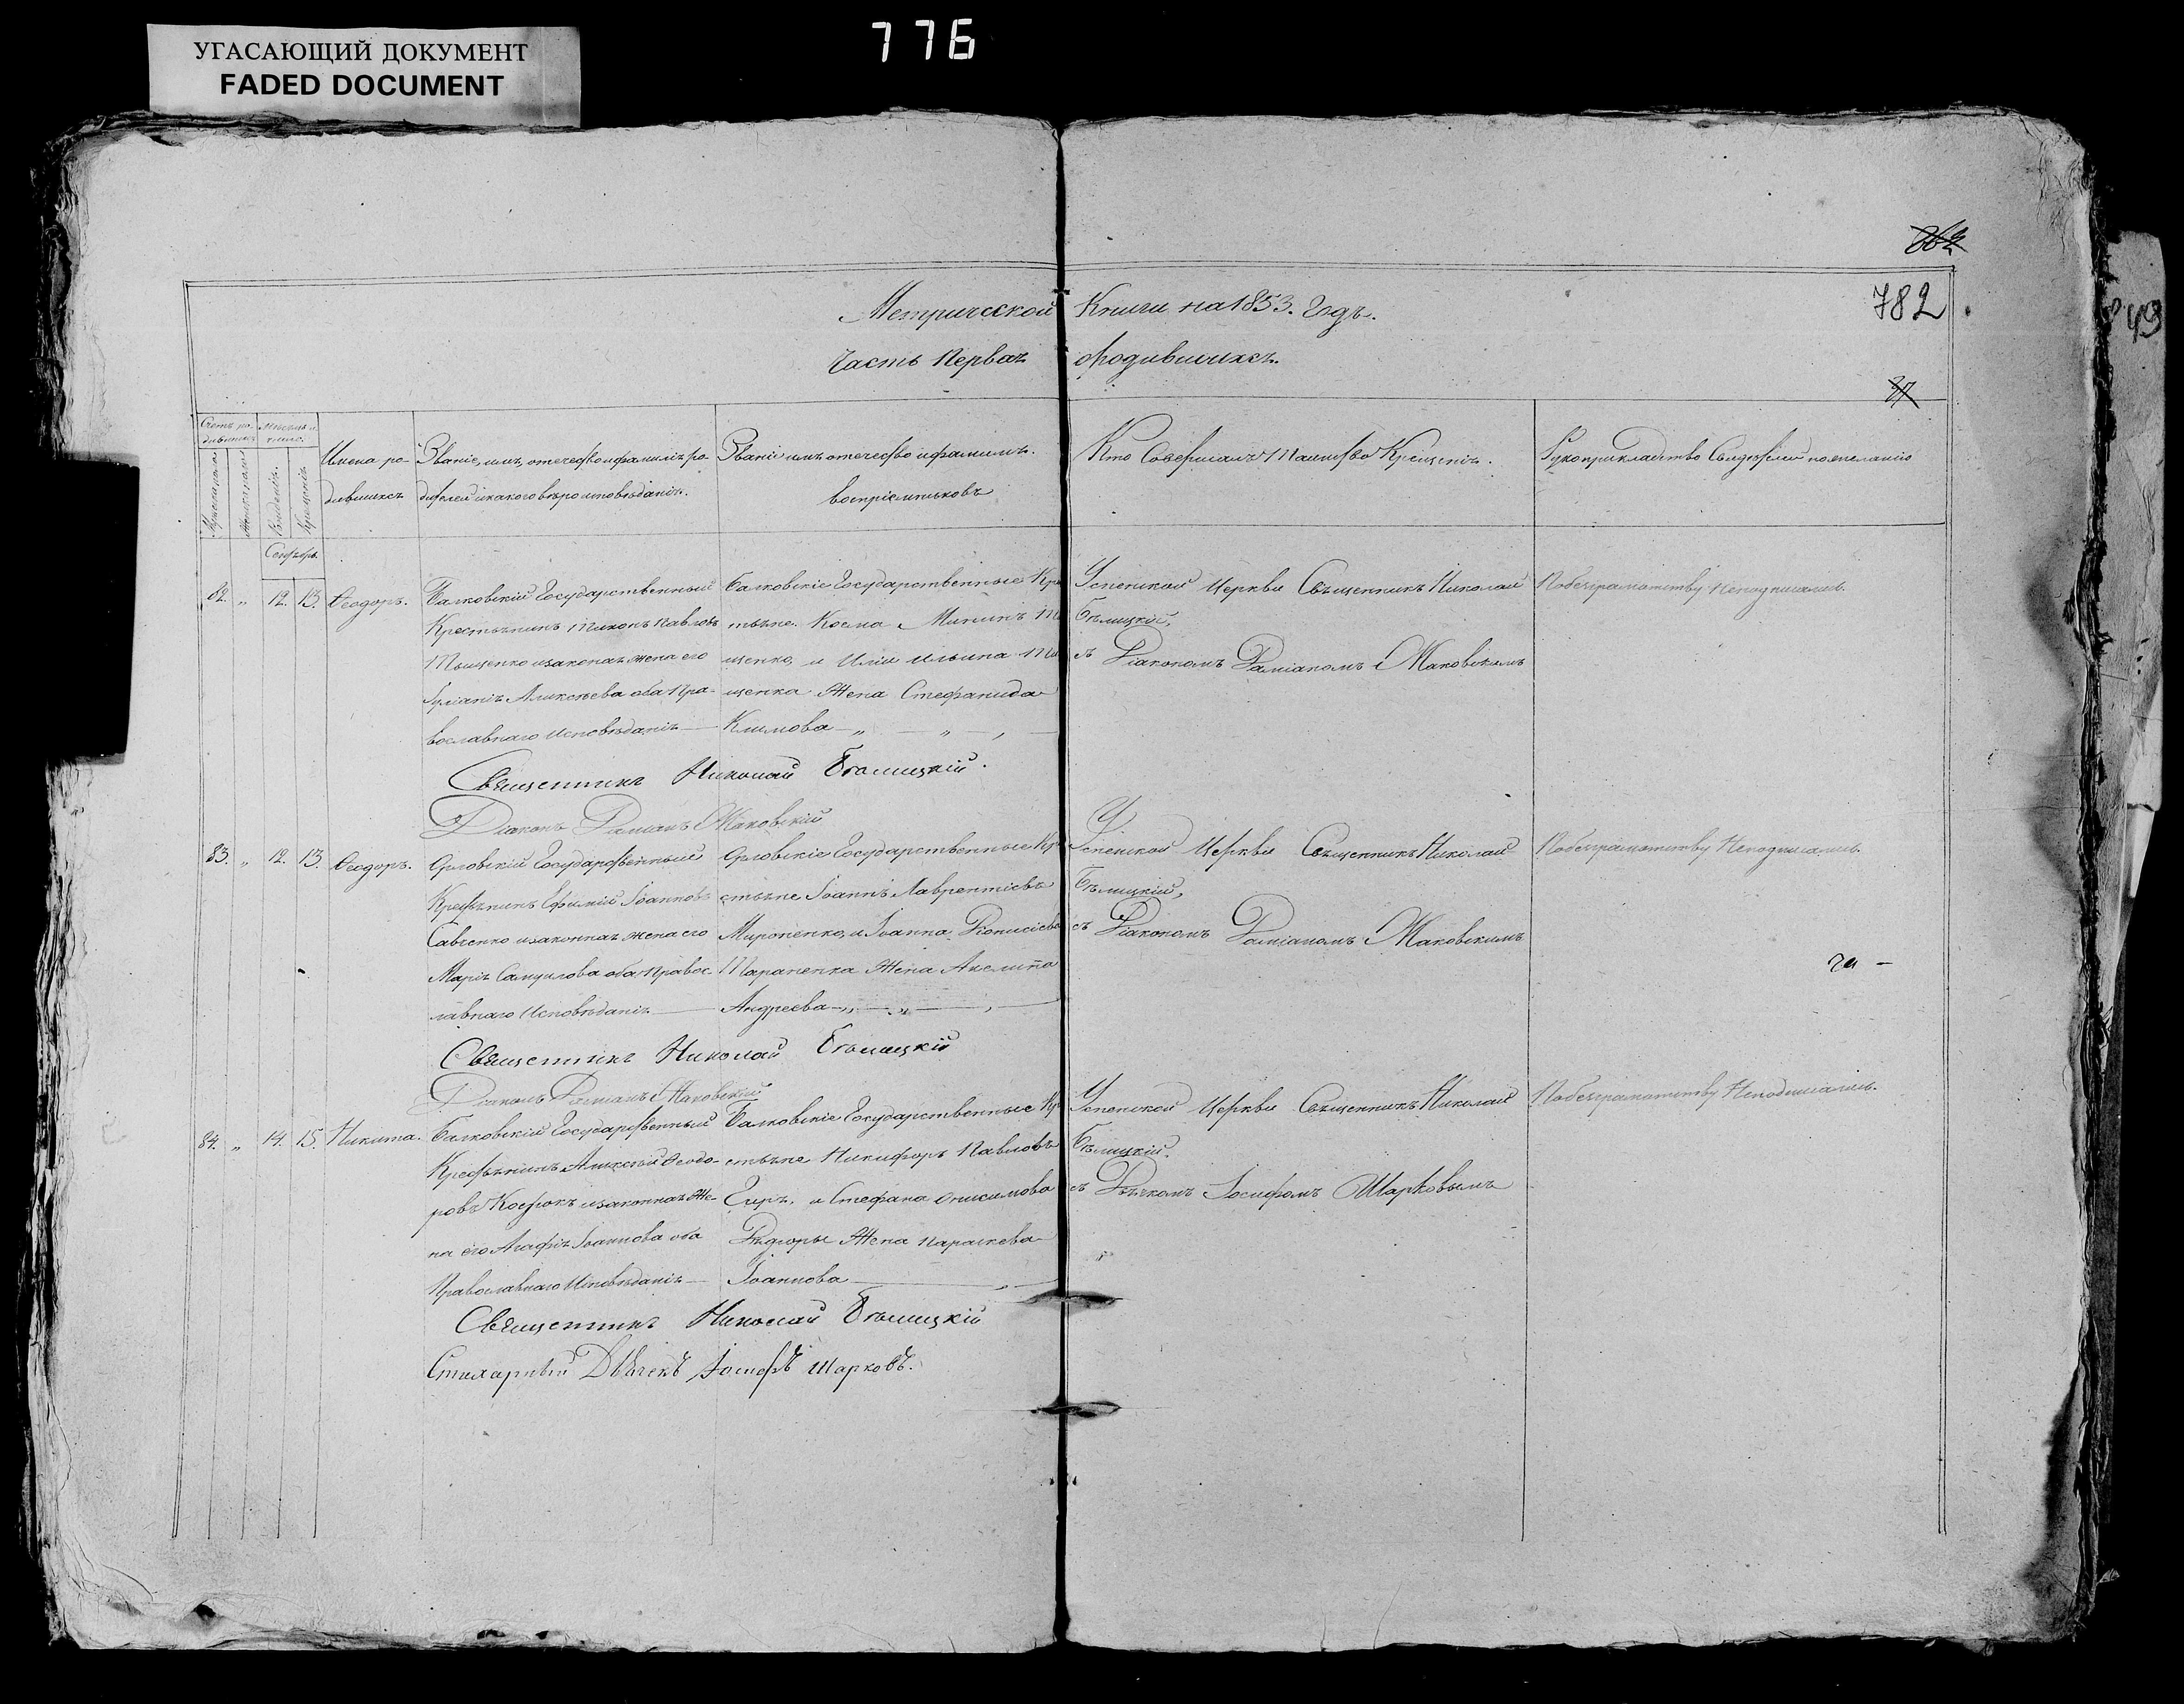 УГАСАЮЩИЙ ДОКУМЕНТ
FADED DOCUMENT
776
782
Метрической Книги на 1853. Годъ.
Часть Первая о родившихся.
Счетъ ро- Мѣсяцъ и
дившихся число.
Мужеска пола
Женска пола
Рожденія.
Крещенія.
Имена ро-
дившихся
Званіе, имя, отечество и фамилія ро-
дителей и какого вѣроисповѣданія.
Званіе имя отечество и фамилія.
воспріемниковъ
Кто Совершалъ Таинство Крещенія.
Рукоприкладство Свидѣтелей по желанію
Сентябрь.
82. „ 12. 13. Ѳеодоръ.
Балковскій Государственный
Крестьянинъ Тихонъ Павловъ
Тыщенко и законная жена его
Іуліанія Алексѣева оба Пра-
вославнаго Исповѣданія
Балковскіе Государственные Кре
стьяне. Косма Мининъ Ти
щенко, и Иліи Ильина Ти
щенка Жена Стефанида
Климова
Успенской Церкви Священникъ Николай
Бѣлицкій,
съ Діакономъ Даміаномъ Маковскимъ
По безграмотству Неподписались.
Священникъ Николай Бѣлицкій.
Діаконъ Даміанъ Маковскій
83. „ 12. 13. Ѳеодоръ.
Орловскій Государственный
Крестьянинъ Ефимій Іоанновъ
Савченко и законная жена его
Марія Самуилова оба Правос-
лавнаго Исповѣданія
Орловскіе Государственные Кре
стьяне Іоаннъ Лаврентіевъ
Мироненко, и Іоанна Діонисіева
Параненка Жена Акелина
Андреева
Успенской Церкви Священникъ Николай
Бѣлицкій,
съ Діакономъ Даміаномъ Маковскимъ
По безграмотству Неподписались.
Священникъ Николай Бѣлицкій
Діаконъ Даміанъ Маковскій
84. „ 14. 15. Никита.
Балковскій Государственный
Крестьянинъ Алексѣй Ѳеодо-
ровъ Костюкъ и законная Же-
на его Агафія Іоаннова оба
Православнаго Исповѣданія
Балковскіе Государственные Кр
стьяне Никифоръ Павловъ
Гиря, и Стефана Онисимова
Жена Параскева
Іоаннова
Успенской Церкви Священникъ Николай
Бѣлицкій.
съ Дьячкомъ Іосифомъ Шарковымъ
По безграмотству Неподписались.
Священникъ Николай Бѣлицкій
Стихарный Дьячекъ Іосифъ Шарковъ.